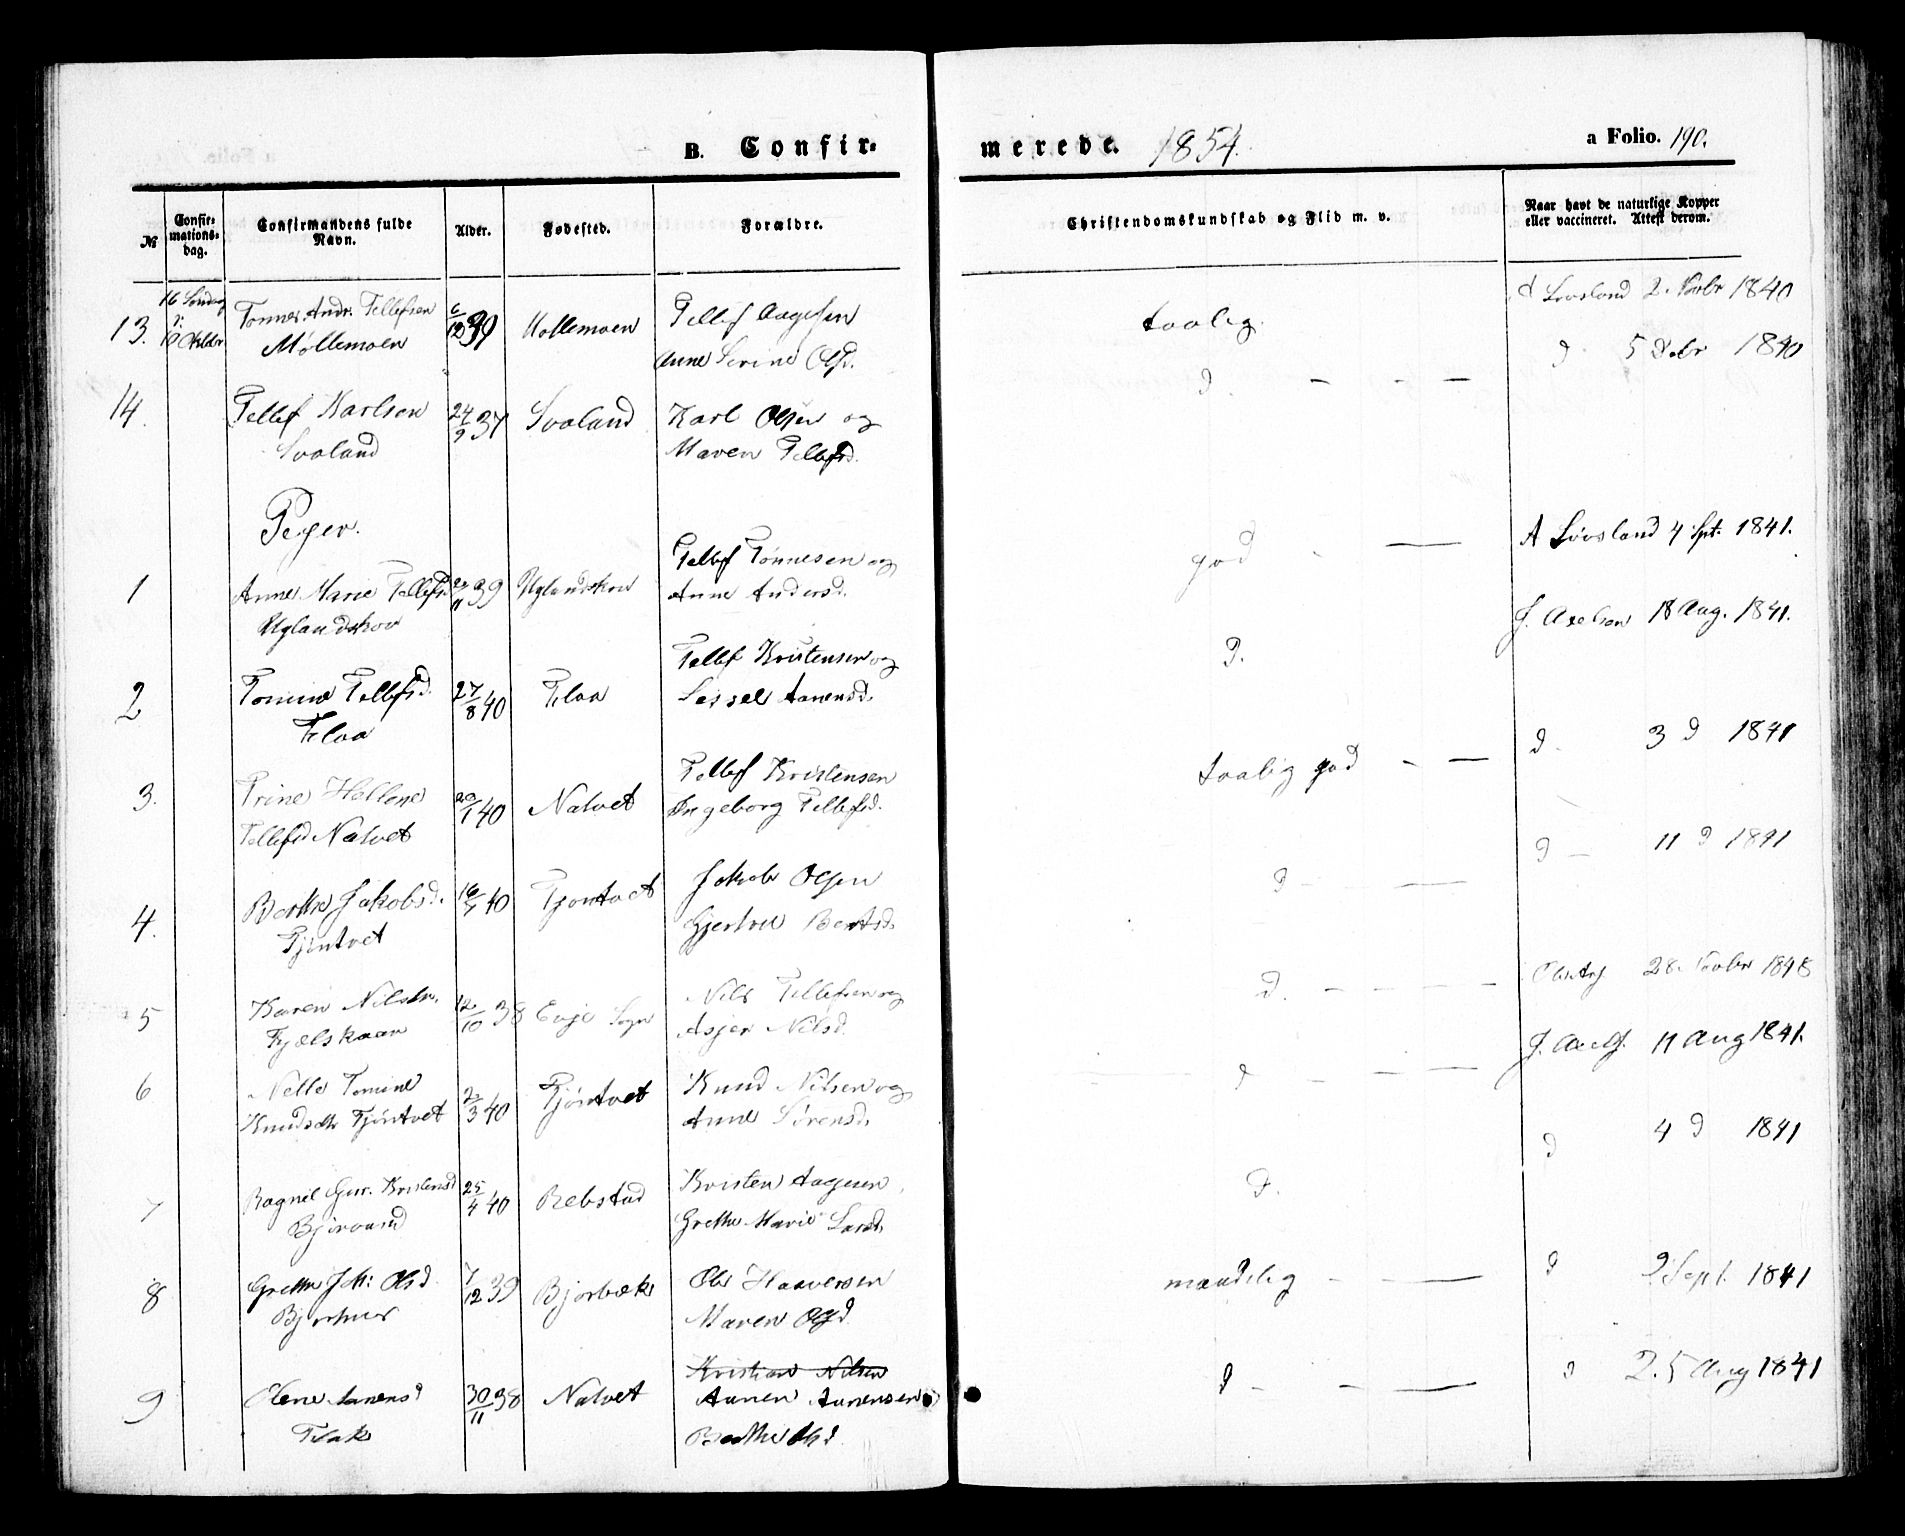 B. Confir-
merede. 1854.
a Folio. 190.
№
Confir-
mations-
dag.
Confirmandens fulde
Navn.
Alder.
Fødested.
Forældre.
Christendomskundskab og Flid m. v.
Naar havt de naturlige Kopper
eller vaccineret. Attest derom.
13.
16 Søndag
Oktbr
Tønnes Andr. Tellefsen
Møllemoen
6/12 39
Møllemoen
Tellef Aagesen
Anne Serine Olsd.
taalig.
Lovsland 2. Novbr 1840
14.
Tellef Karlsen
Svaland
24/9 37
Svaland
Karl Olsen og
Maren Tellefsd.
d. — - —
d 5 1840
Piger.
1
Anne Marie Tellefsd
Uglandskov
20/11 39
Uglandskov
Tellef Tønnesen og
Anne Andersd.
god - —
A Lovsland 4 Spt. 1841.
2
Tomine Tellefsd.
Flaa
27/8 40
Flaa
Tellef Kristensen og
Sessel Aanensd.
d.
J. Axelsen 18 Aug. 1841.
3.
Trine Hellene
Tellefsd Natvet
20/1 40
Natvet
Tellef Kristensen
Ingeborg Tellefsd.
taalig god - —
d. 3 d 1841
4.
Berthe Jakobsd.
Tjøntvet
16/7 40
Tjøntvet
Jakob Olsen
Gjertru Berntsd.
d - —
d — 11 d 1841
5
Karen Nilsdtr.
Fjælskaar
12/10 38
Evje Sogn
Nils Tellefsen og
Asjer Nilsd.
d. — - - —
28. Novbr 1848
6
Nelle Tomine
Knudsdtr Tjøntvet
2/3 40
Tjøntvet
Knud Nilsen og
Anne Sørensd.
d - — —
J. Axels. 11 Aug 1841.
7
Ragnil Gur. Kristensd
Bjorvand
25/4 40
Rebstad
Kristen Aagesen
Grethe Marie Larsd.
d.
d 4 d 1841
8
Grethe Joh: Olsd.
7/12 39
Bjorbæk
Ole Haaversen
Maren Olsd
maadelig - — —
d 2 Sept. 1841
9
Olene Aanensd
Flak
30/11 38
Natvet
Kristian Nilsen
Aanen Aanensen og
Berthe Olsd.
d — — —
d 25 Aug 1841